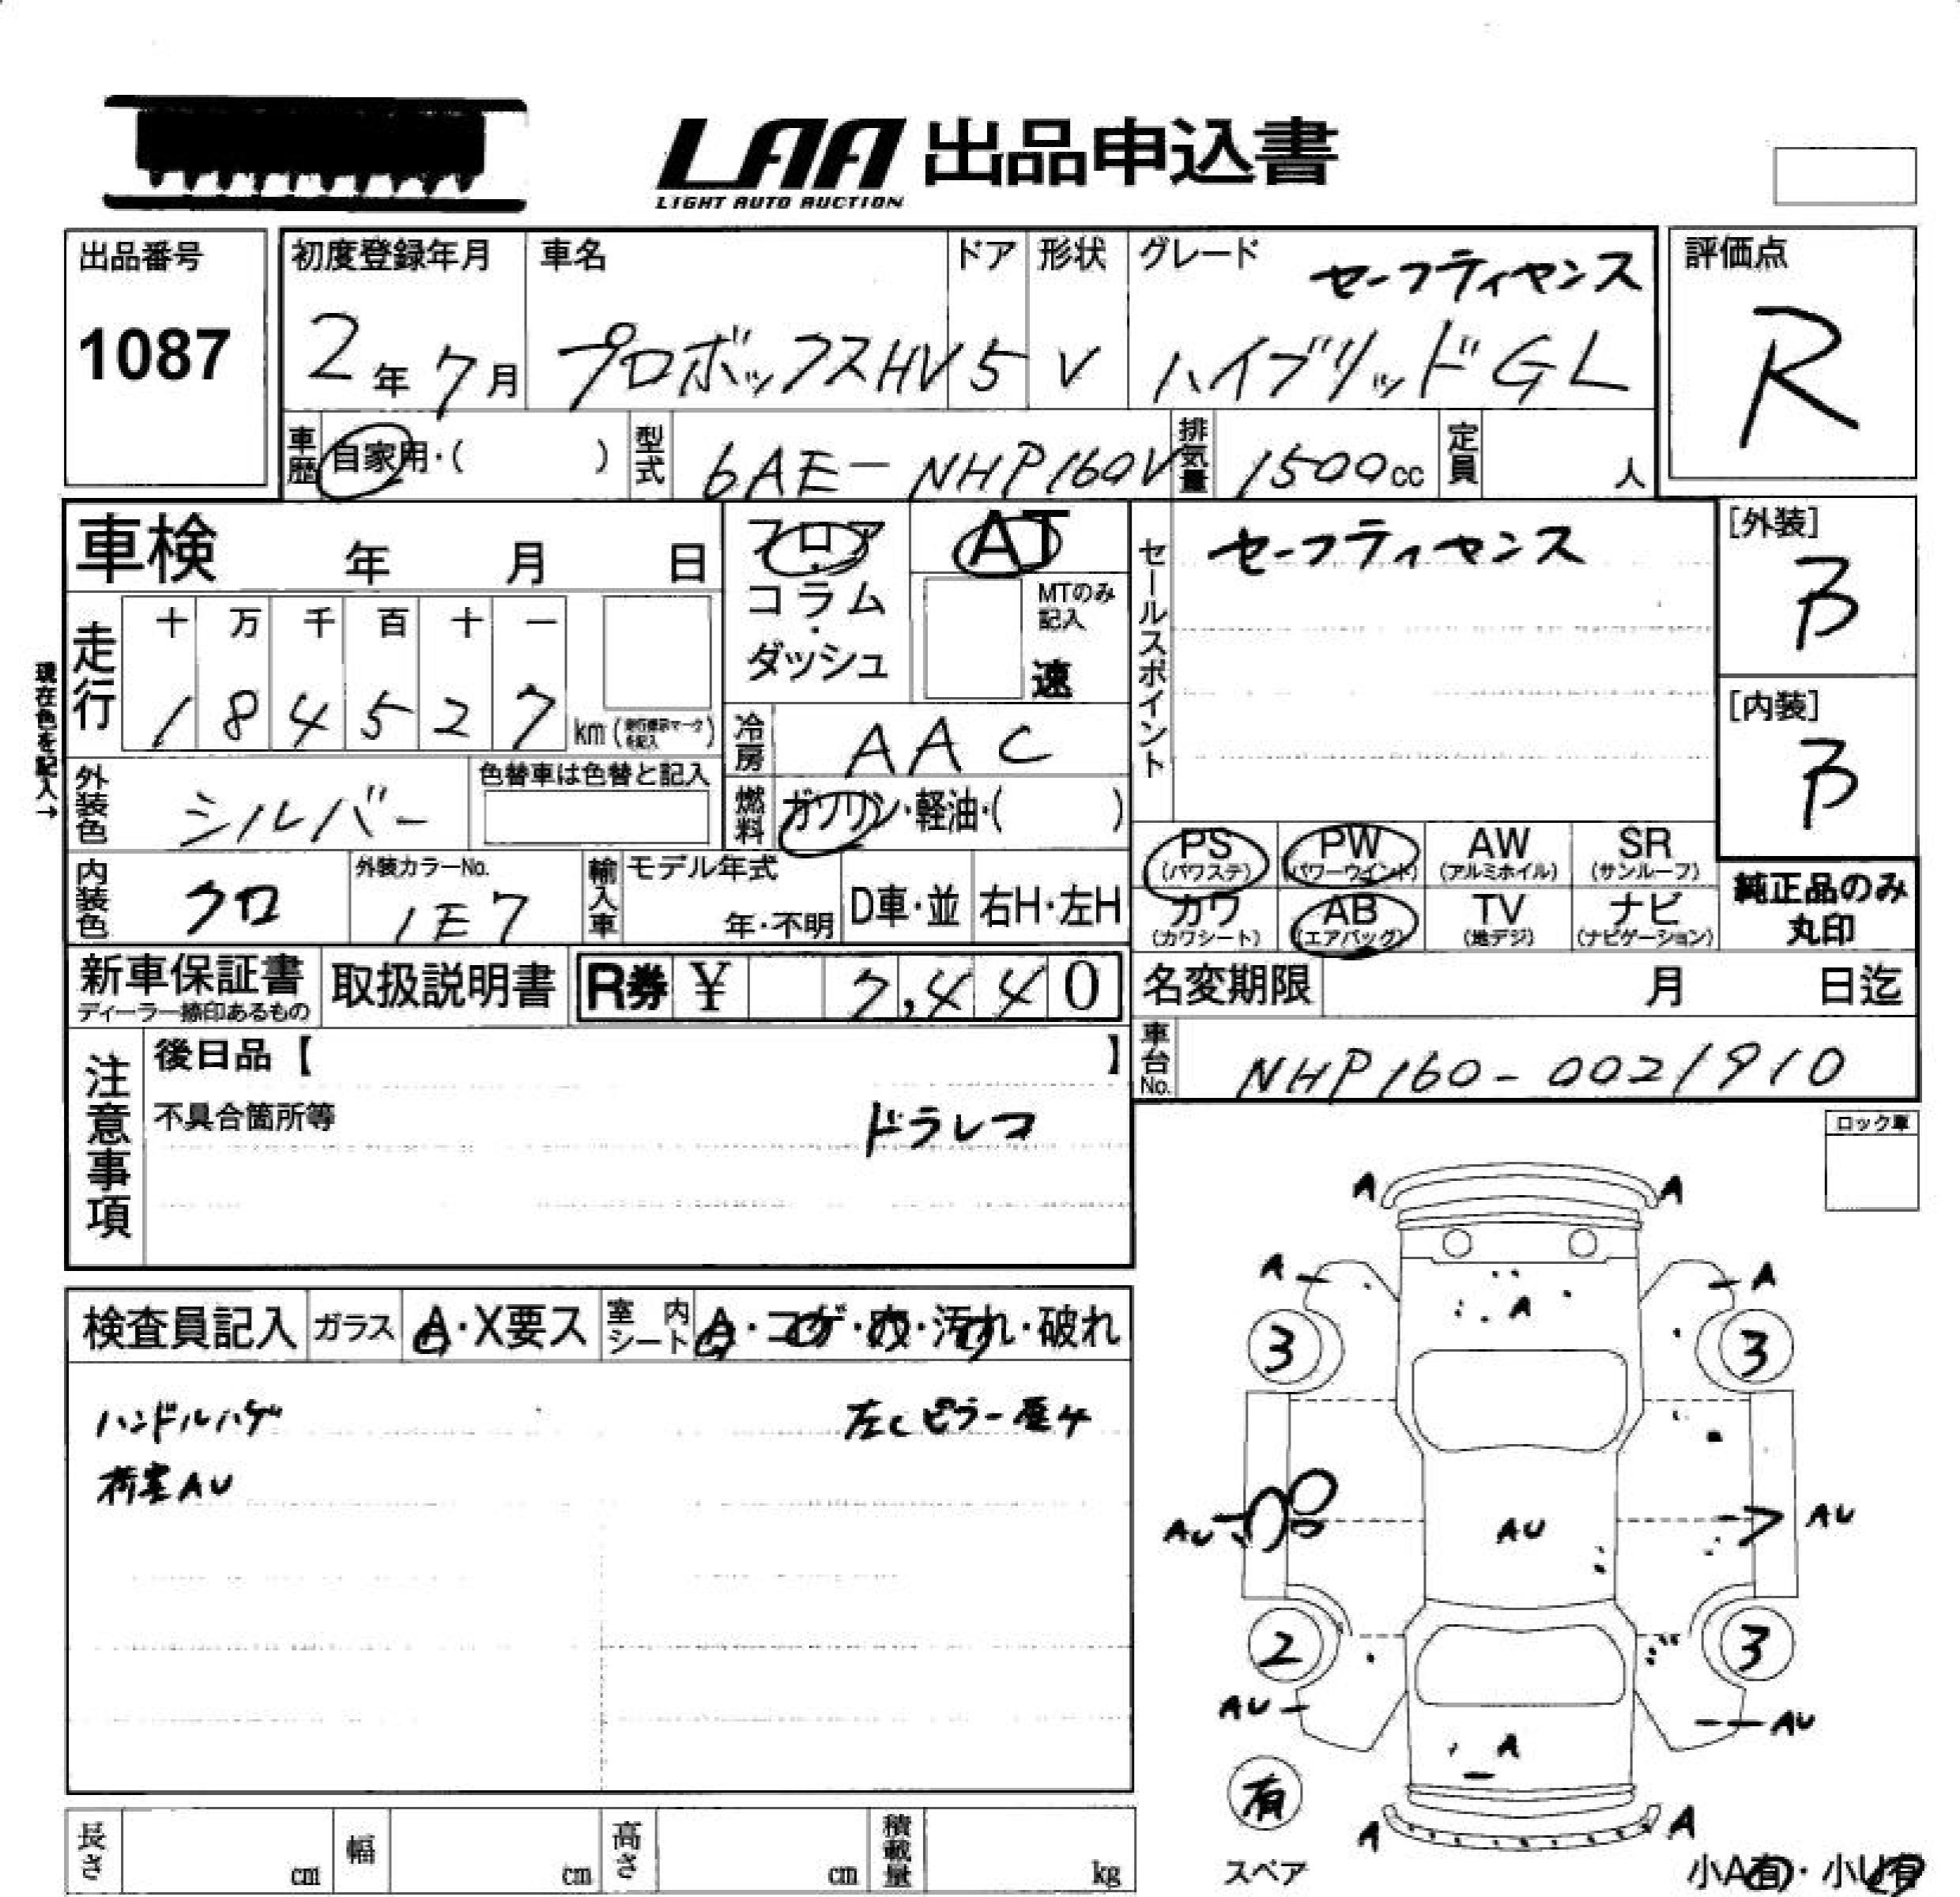 LAA 出品申込書
LIGHT AUTO AUCTION
出品番号
1087
初度登録年月
2年7月
車名
プロボックスHV
ドア
5
形状
V
グレード
セーフティセンス
ハイブリッドGL
評価点
R
車歴
自家用・( )
型式
6AE-NHP160V
排気量
1500cc
定員
人
車検 年 月 日
フロア・コラム・ダッシュ
AT
MTのみ記入
速
セールスポイント
セーフティセンス
[外装]
B
[内装]
B
現在色を記入→
走行
十 万 千 百 十 一
1 8 4 5 2 7
km
冷房
AAC
外装色
シルバー
色替車は色替と記入
燃料
ガソリン・軽油・( )
内装色
クロ
外装カラーNo.
1E7
輸入車
モデル年式
年・不明
D車・並
右H・左H
PS (パワステ)
PW (パワーウインド)
AW (アルミホイル)
SR (サンルーフ)
カワ (カワシート)
AB (エアバッグ)
TV (地デジ)
ナビ (ナビゲーション)
純正品のみ丸印
新車保証書
ディーラー捺印あるもの
取扱説明書
R券 ¥ 7,440
名変期限 月 日迄
車台No.
NHP160-0021910
注意事項
後日品【 】
不具合箇所等
ドラレコ
ロック車
検査員記入
ガラス
A・X要ス
室内シート
A・コゲ・穴・汚れ・破れ
ハンドルハゲ
左Cピラー歴有
荷室AU
A A
A A
A
3 3
AU AU AU
2 3
AU AU
A
有
スペア
A A
小A有・小U有
長さ cm
幅 cm
高さ cm
積載量 kg